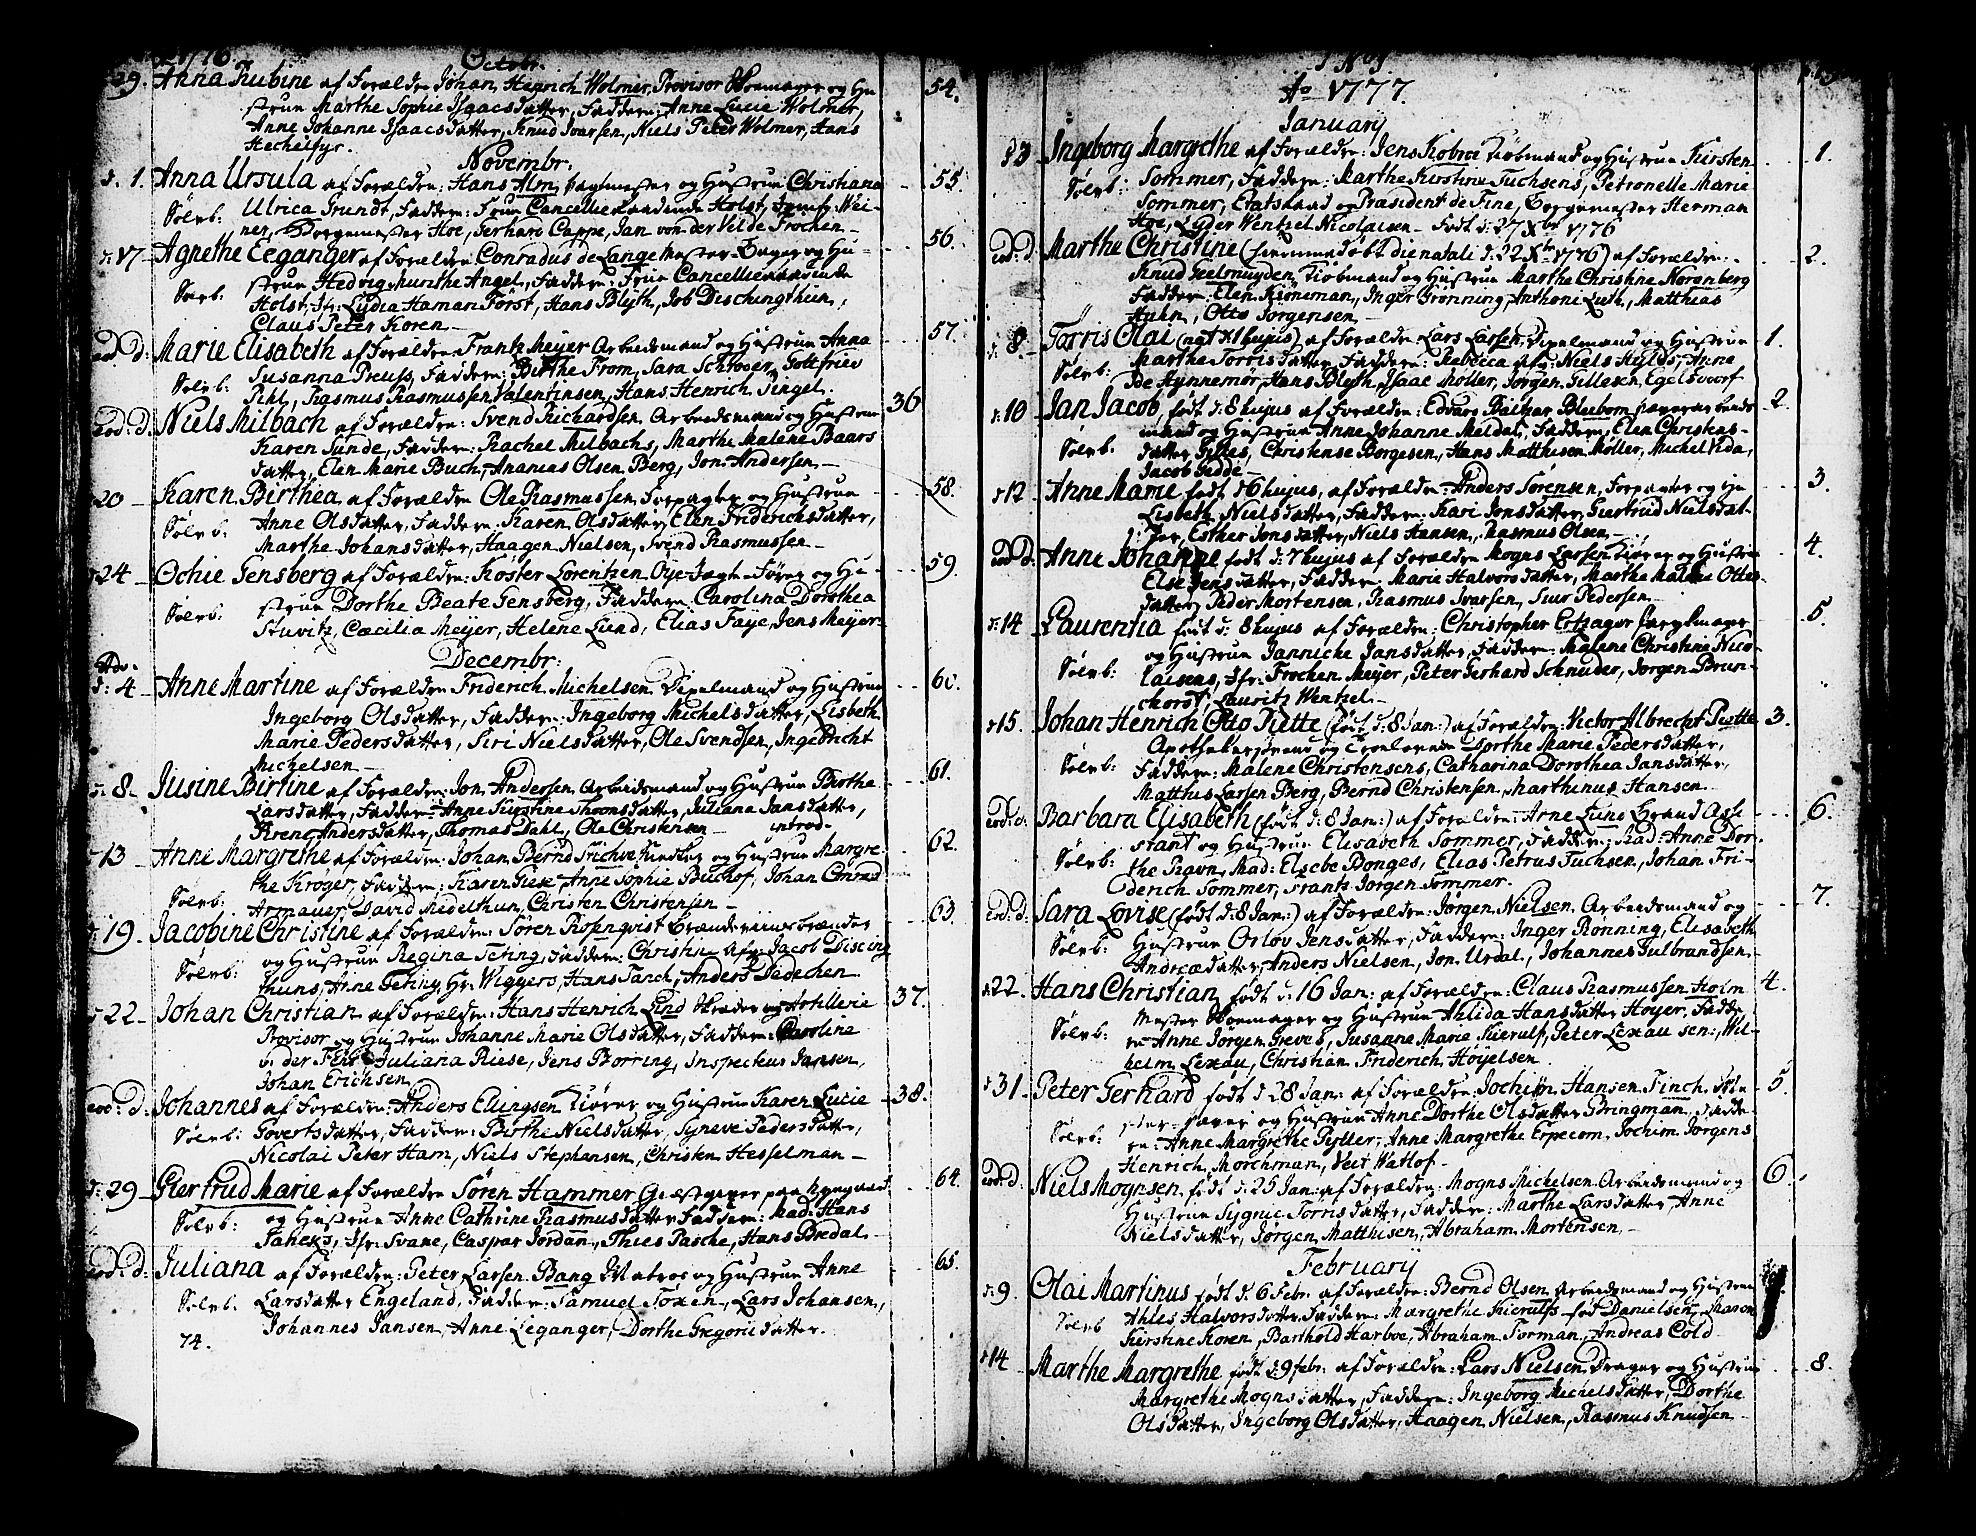 1776. Octobr.
29. Anna Rubine af Forældre Johan Henrich Wolmer, Provisor Skoemager og Hu- 54.
strue Marthe Sophie Isaacsdatter, Faddere: Anne Lucie Wolmer,
Anne Johanne Isaacsdatter, Knud Ivarsen, Niels Peter Wolmer, Hans
Hechelfyr.
Novembr.
d. 1. Anna Ursula af Forældre: Hans Alm, Vagtmester og Hustrue Christiana 55.
Sølvb: Ulrica Grundt, Faddere: Frue Cancellieraadinde Holst, Jomfr. Wei-
ner, Borgemester Hoe, Gerhard Cappe, Jan von der Velde Frochen.
d: 17 Agnethe Eeganger af Forældre Conradus de Lange Mester-Bager og Hu- 56.
Sølvb: strue Hedvig Munthe Angel, Faddere: Frue Cancellieraadinde
Holst, Jfr: Lydia Haman Forst, Hans Blyth, Job Dischingthun,
Claus Peter Koren
eod. d: Marie Elisabeth af Forældre: Frantz Meyer Arbeidsmand og Hustrue Anna 57.
Sølvb: Susanna Preuss, Faddere: Birthe From, Sara Schrøder, Gottfried
Pihl, Rasmus Rasmussen Valentinsen, Hans Henrich Tingel.
eod: d: Niels Milbach af Forældre: Svend Richardsen Arbeidsmand og Hustrue 36
Karen Sunde, Faddere: Rachel Milbachs, Marthe Malene Baars
datter, Elen Marie Buch, Ananias Olsen Berg, Jon Andersen
d 20 Karen Birthea af Forældre Ole Rasmussen Forpagter og Hustrue 58.
Sølvb: Anne Olsdatter, Faddere: Karen Olsdatter, Elen Friderichsdatter,
Marthe Johansdatter, Haagen Nielsen, Svend Rasmussen
d 24 Ochie Gensberg af Forældre: Køster Lorentzen Øye-Jagte-Fører og Hu- 59.
Sølvb: strue Dorthe Beate Gensberg, Faddere: Carolina Dorothea
Stuvitz, Cæcilia Meyer, Helene Lund, Elias Faye, Jens Meyer
Decembr:
Adv.
d: 4 Anne Martine af Forældre Friderich Michelsen Pipelmand og Hustrue 60.
Ingeborg Olsdatter, Faddere: Ingeborg Michelsdatter, Lisbeth
Marie Pedersdatter, Siri Nielsdatter, Ole Svendsen, Ingebricht
Michelsen
d: 8 Jusine Birtine af Forældre: Jon Andersen Arbeidsmand og Hustrue Birthe 61.
Larsdatter, Faddere: Anne Kirstine Thomsdatter, Juliana Jansdatter,
Birene Andersdatter, Thomas Dahl, Ole Christensen introd.
d 13 Anne Margrethe af Forældre: Johan Bernd og Hustrue Margre- 62.
Sølvb: the Krøger, Faddere: Karen Giese, Anne Sophie Buchof, Johan Conrad
Armauer, David Medelthun, Christen Christensen
d: 19 Jacobine Christine af Forældre: Søren Rosenqvist Brændeviinsbrænder 63.
Sølvb: og Hustrue Regina Teting, Faddere: Christine afg. Jacob Discing
thuns, Anne Teting, Hr. Wiggers, Hans Tanch, Anders Dedechen
d 22 Johan Christian af Forældre: Hans Henrich Lind Skræder og Artillerie 37.
Provisor og Hustrue Johanne Marie Olsdatter, Faddere: Caroline
v. der Fehr, Juliana Riese, Jens Borring, Inspecteur Jansen,
Johan Erichsen
eod. d. Johannes af Forældre: Anders Ellingsen Kiører og Hustrue Karen Lucie 38.
Sølvb: Govertsdatter, Faddere: Birthe Nielsdatter, Syneve Pedersdatter,
Nicolai Peter Ham, Niels Stephansen, Christen Hesselman
d: 29 Giertrud Marie af Forældre Søren Hammer Giestgever paa 64.
Sølvb: og Hustrue Anne Cathrine Rasmusdatter Faddere: Mad: Hans
Taheks, Jfr: Svane, Caspar Jordan, Thies Pasche, Hans Bredal
eod: d: Juliana af Forældre: Peter Larsen Bang Matros og Hustrue Anne 65.
Sølvb. Larsdatter Engeland, Faddere: Samuel Foxen, Lars Johansen,
Johannes Jansen, Anne Leganger, Dorthe Gregoriidatter.
74.
Ao 1777.
January
d 3 Ingeborg Margrethe af Forældre: Jens Kobroe Kiøbmand og Hustrue Kirsten 1.
Sølvb: Sommer, Faddere: Marthe Kirstine Fuchsens, Petronelle Marie
Sommer, Etatsraad og Præsident de Fine, Borgemester Herman
Hoe, Lyder Wentzel Nicolaisen. Født d: 27 Xbr 1776
eod. d. Marthe Christine (hiemmedøbt die natali d: 22 Xbr 1776) af Forældre: 2.
Knud Geelmuyden Kiøbmand og Hustrue Marthe Christine Norenberg
Faddere: Elen Krøneman, Inger Grønning, Anthoni Luth, Matthias
Huhn, Otto Jørgensen
d. 8. Torris Olai (nat: 1 hujus) af Forældre: Lars Larsen, Pipelmand og Hustrue 1.
Sølvb: Marthe Torrisdatter, Faddere: Rebecca afg. Niels Hylds, Anne
de Hynnemør, Hans Blyth, Isaac Møller, Jørgen Gillesen Egelsdorf
d: 10 Jan Jacob, født d: 8 hujus af Forældre: Edvard Baltzar Bleeborn Haverarbeids 2.
Sølvb. mand og Hustrue Anne Johanne Meldal, Faddere, Elen Christens-
datter Gilkes, Christense Borgesen, Hans Matthisen Møller, Michel Vida,
Jacob Gedde
d 12 Anne Marie født d 6 hujus, af Forældre: Anders Sørensen, Forpagter og Hu 3.
Lisbeth Nielsdatter, Faddere: Kari Jonsdatter, Giertrud Nielsdat-
ter, Esther Jonsdatter, Niels Hansen, Rasmus Olsen
eod. d. Anne Johanne født d: 7 hujus af Forældre Mogns Larsen Kiører og Hustrue 4.
Else Jensdatter, Faddere: Marie Halvorsdatter, Marthe Malene Ottes
datter, Peder Mortensen, Rasmus Ivarsen, Siur Pedersen
d: 14 Laurentia født d: 8 hujus af Forældre: Christopher Ertzager 5.
Sølvb: og Hustrue Jannicke Jansdatter, Faddere: Malene Christine Nico-
laisens, Jfr: Frochen Meyer, Peter Gerhard Schneider, Jørgen Brun-
chorst, Lauritz Wentzel
d 15. Johan Henrich Otto Piette (født d: 8 Jan:) af Forældre: Victor Albrecht Piette 3.
Sølvb: Apothekersvend og Dorthe Marie Pedersdatter,
Faddere: Malene Christensens, Catharina Dorothea Jansdatter,
Matthis Larsen Berg, Bernd Christensen, Marthinus Hansen
eod: d: Barbara Elisabeth (født d: 8 Jan:) af Forældre: Arne Lund Brand Assi- 6.
Sølvb: stant og Hustrue Elisabeth Sommer, Faddere: Mad: Anne Dor-
the Ravn, Mad: Elsebe Donges, Elias Petrus Fuchsen, Johan Fri-
derich Sommer, Frantz Jørgen Sommer.
eod: d: Sara Lovise (født d: 8 Jan:) af Forældre: Jørgen Nielsen Arbeidsmand og 7.
Sølvb: Hustrue Orlov Jensdatter, Faddere: Inger Rønning, Elisabeth
Andreædatter, Anders Nielsen, Jon Urdal, Johannes Gulbrandsen
d 22. Hans Christian født d: 16 Jan: af Forældre: Claus Rasmussen Holm 4.
Sølvb: Mester Skoemager og Hustrue Ahlida Hansdatter Høyer, Fadde
re: Anne Jørgen Greves, Susanne Marie Kierulf, Peter Lexau sen:, Wil-
helm Lexau, Christian Friderich Høyelsen
d 31. Peter Gerhard født d 28 Jan: af Forældre: Jochim Hansen Finch 5.
Sølvb: og Hustrue Anne Dorthe Olsdatter Bringman, Fadde-
re: Anne Margrethe Pyller, Anne Margrethe Erpecom, Jochim Jørgens
Henrich Morchman, Veit Watlof
eod: d: Niels Mognsen, født d: 25 Jan: af Forældre: Mogns Michelsen Arbeidsmand og 6.
Hustrue Sygnie Torrisdatter, Faddere: Marthe Larsdatter, Anne
Nielsdatter, Jørgen Matthisen, Abraham Mortensen
February
d: 9. Olai Martinus født d: 6 Febr: af Forældre: Bernd Olsen Arbeidsmand og Hustrue
Sølvb Ahles Halvorsdatter, Faddere: Margrethe Kierulfs fød Danielsen, Maren
Kirstine Koren, Barthold Harboe, Abraham Forman, Andreas Cold
d 14 Marthe Margrethe født d: 9 febr: af Forældre: Lars Nielsen Drager og Hustrue 8.
Margrethe Mognsdatter, Faddere: Ingeborg Michelsdatter, Dorthe
Olsdatter, Ingeborg Olsdatter, Haagen Nielsen, Rasmus Knudsen